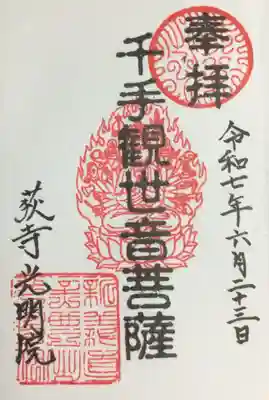 奉拝
令和七年六月二十三日
千手観世音菩薩
荻寺光明院